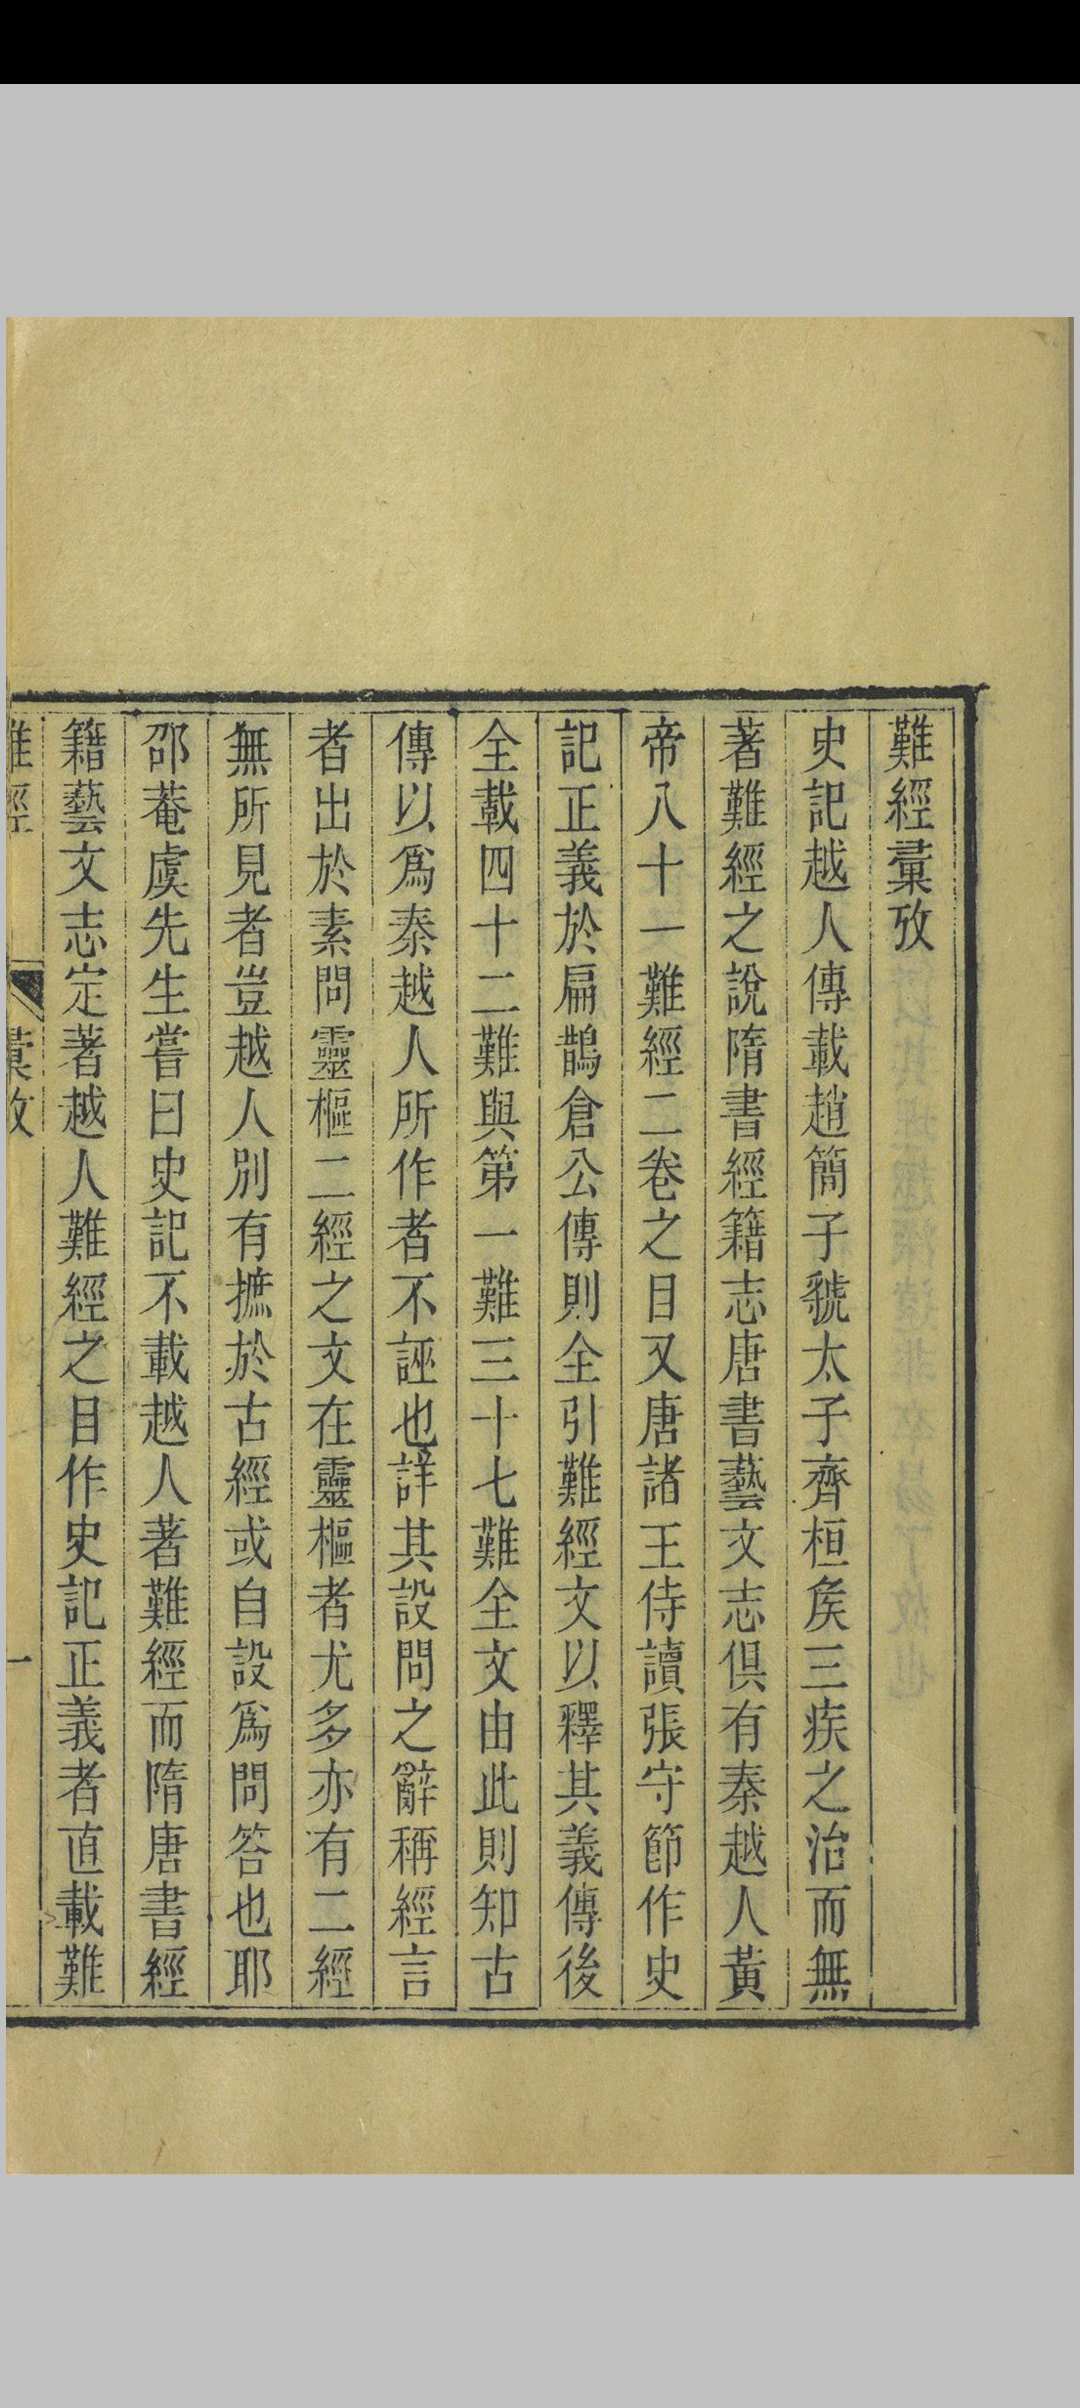 難經彚攷
史記越人傳載趙簡子虢太子齊桓矦三疾之治而無
著難經之說隋書經籍志唐書藝文志俱有秦越人黃
帝八十一難經二卷之目又唐諸王侍讀張守節作史
記正義於扁鵲倉公傳則全引難經文以釋其義傳後
全載四十二難與第一難三十七難全文由此則知古
傳以爲秦越人所作者不誣也詳其設問之辭稱經言
者出於素問靈樞二經之文在靈樞者尤多亦有二經
無所見者豈越人別有摭於古經或自設爲問答也耶
邵菴虞先生嘗曰史記不載越人著難經而隋唐書經
籍藝文志定著越人難經之目作史記正義者直載難
難經
彚攷
一